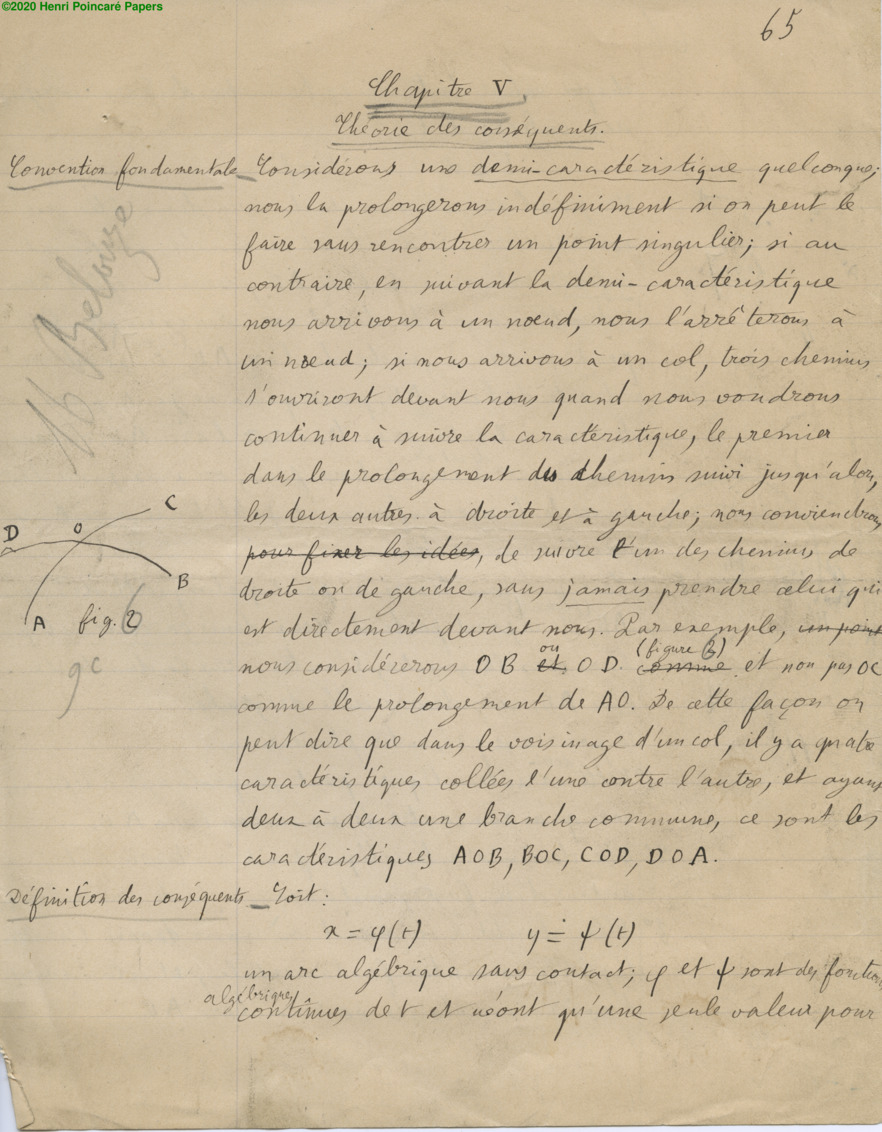 ©2020 Henri Poincaré Papers
65
Chapitre V
Théorie des conséquents.
Convention fondamentale_ Considérons une demi-caractéristique quelconque;
nous la prolongerons indéfiniment si on peut le
faire sans rencontrer un point singulier; si au
contraire, en suivant la demi-caractéristique
nous arrivons à un nœud, nous l'arrêterons à
un nœud; si nous arrivons à un col, trois chemins
s'ouvriront devant nous quand nous voudrons
continuer à suivre la caractéristique, le premier
dans le prolongement du chemin suivi jusqu'alors,
les deux autres à droite et à gauche; nous conviendrons
pour fixer les idées, de suivre l'un des chemins de
droite ou de gauche, sans jamais prendre celui qui
est directement devant nous. Par exemple, un point
nous considérerons OB et ou OD comme (figure 2) et non pas OC
comme le prolongement de AO. De cette façon on
peut dire que dans le voisinage d'un col, il y a quatre
caractéristiques collées l'une contre l'autre, et ayant
deux à deux une branche commune, ce sont les
caractéristiques AOB, BOC, COD, DOA.
D O C
B
A fig. 2 6
9c
Définition des conséquents_ Soit:
x = φ(t) y = ψ(t)
un arc algébrique sans contact; φ et ψ sont des fonctions
algébriques
continues de t et n'ont qu'une seule valeur pour